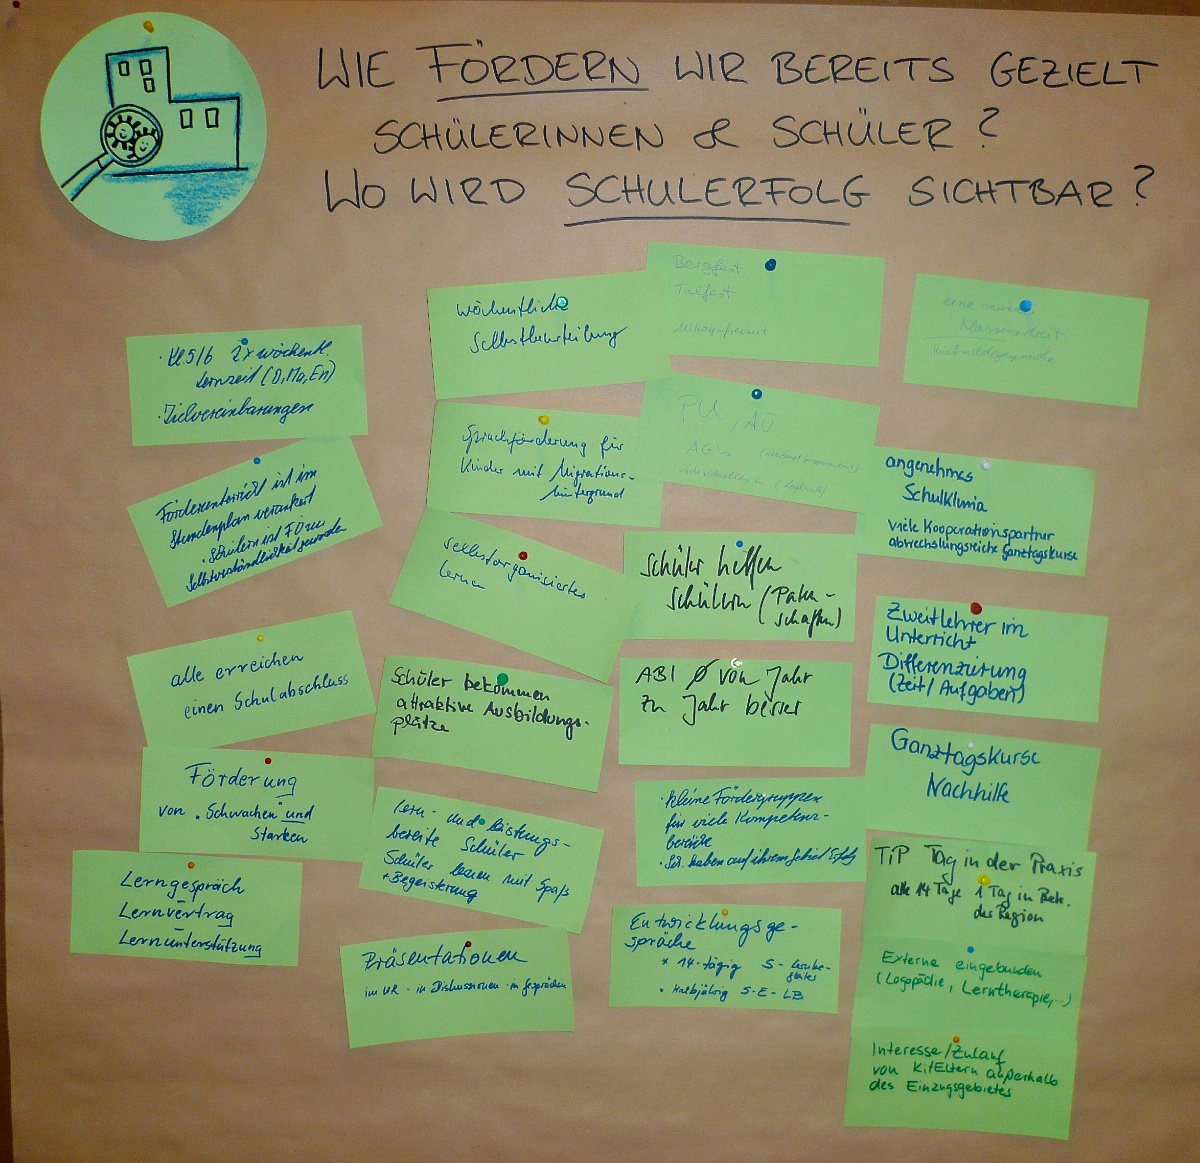 WIE FÖRDERN WIR BEREITS GEZIELT
SCHÜLERINNEN & SCHÜLER?
WO WIRD SCHULERFOLG SICHTBAR?
· Kl 5/6 2x wöchentl.
Lernzeit (D, Ma, En)
· Zielvereinbarungen
Förderunterricht ist im
Stundenplan verankert
· Schülern ist FÖ zu
Selbstverständlichkeit geworden
alle erreichen
einen Schulabschluss
Förderung
von "Schwachen" und
Starken
Lerngespräch
Lernvertrag
Lernunterstützung
wöchentliche
Selbstbeurteilung
Sprachförderung für
Kinder mit Migrations-
hintergrund
selbstorganisiertes
lernen
Schüler bekommen
attraktive Ausbildungs-
plätze
Lern- und Leistungs-
bereite Schüler
Schüler lernen mit Spaß
+ Begeisterung
Präsentationen
im UR · in Diskussionen · in Gesprächen
Bergfest
Talfest
Mittagsfreizeit
PU, AÜ
AG's
Schüler helfen
Schülern (Paten-
schaften)
ABI Ø von Jahr
zu Jahr besser
· kleine Fördergruppen
für viele Kompetenz-
bereiche
· Sch. haben auf ihrem Gebiet Erfolg
Entwicklungsge-
spräche
* 14-tägig S - Lernbe-
gleiter
* Halbjährig S-E-LB
eine
Klassenarbeit
angenehmes
Schulklima
viele Kooperationspartner
abwechslungsreiche Ganztagskurse
Zweitlehrer im
Unterricht
Differenzierung
(Zeit / Aufgaben)
Ganztagskurse
Nachhilfe
TiP Tag in der Praxis
alle 14 Tage 1 Tag in Betr.
der Region
Externe eingebunden
(Logopädie, Lerntherapie,...)
Interesse/Zulauf
von Kit Eltern außerhalb
des Einzugsgebietes